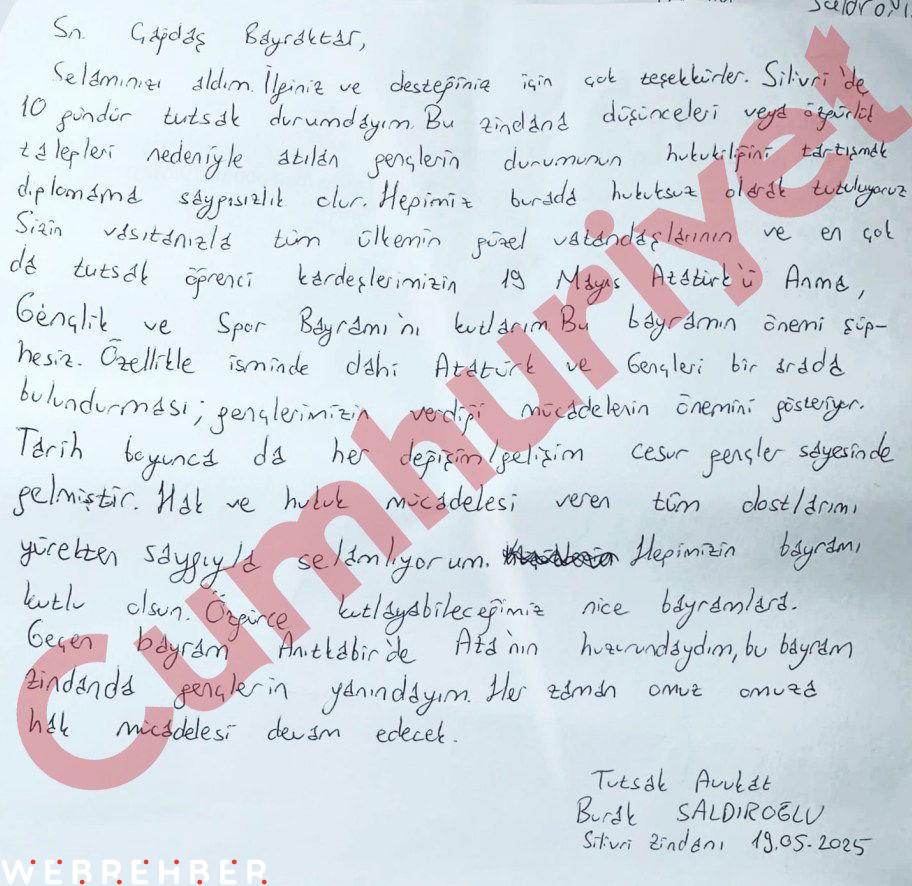 Saldıroğlu
Sn. Çağdaş Bayraktar,
Selamınızı aldım. İlginiz ve desteğiniz için çok teşekkürler. Silivri'de
10 gündür tutsak durumdayım. Bu zindana düşünceleri veya özgürlük
talepleri nedeniyle atılan gençlerin durumunun hukukiliğini tartışmak
diplomama saygısızlık olur. Hepimiz burada hukuksuz olarak tutuluyoruz
Sizin vasıtanızla tüm ülkemin güzel vatandaşlarının ve en çok
da tutsak öğrenci kardeşlerimizin 19 Mayıs Atatürk'ü Anma,
Gençlik ve Spor Bayramı'nı kutlarım. Bu bayramın önemi şüp-
hesiz. Özellikle isminde dahi Atatürk ve Gençleri bir arada
bulundurması; gençlerimizin verdiği mücadelenin önemini gösteriyor.
Tarih boyunca da her değişim/gelişim cesur gençler sayesinde
gelmiştir. Hak ve hukuk mücadelesi veren tüm dostlarımı
yürekten saygıyla selamlıyorum. Hepimizin bayramı
kutlu olsun. Özgürce kutlayabileceğimiz nice bayramlara.
Geçen bayram Anıtkabir'de Ata'nın huzurundaydım, bu bayram
zindanda gençlerin yanındayım. Her zaman omuz omuza
hak mücadelesi devam edecek.
Tutsak Avukat
Burak SALDIROĞLU
Silivri Zindanı 19.05.2025
Cumhuriyet
WEBREHBER